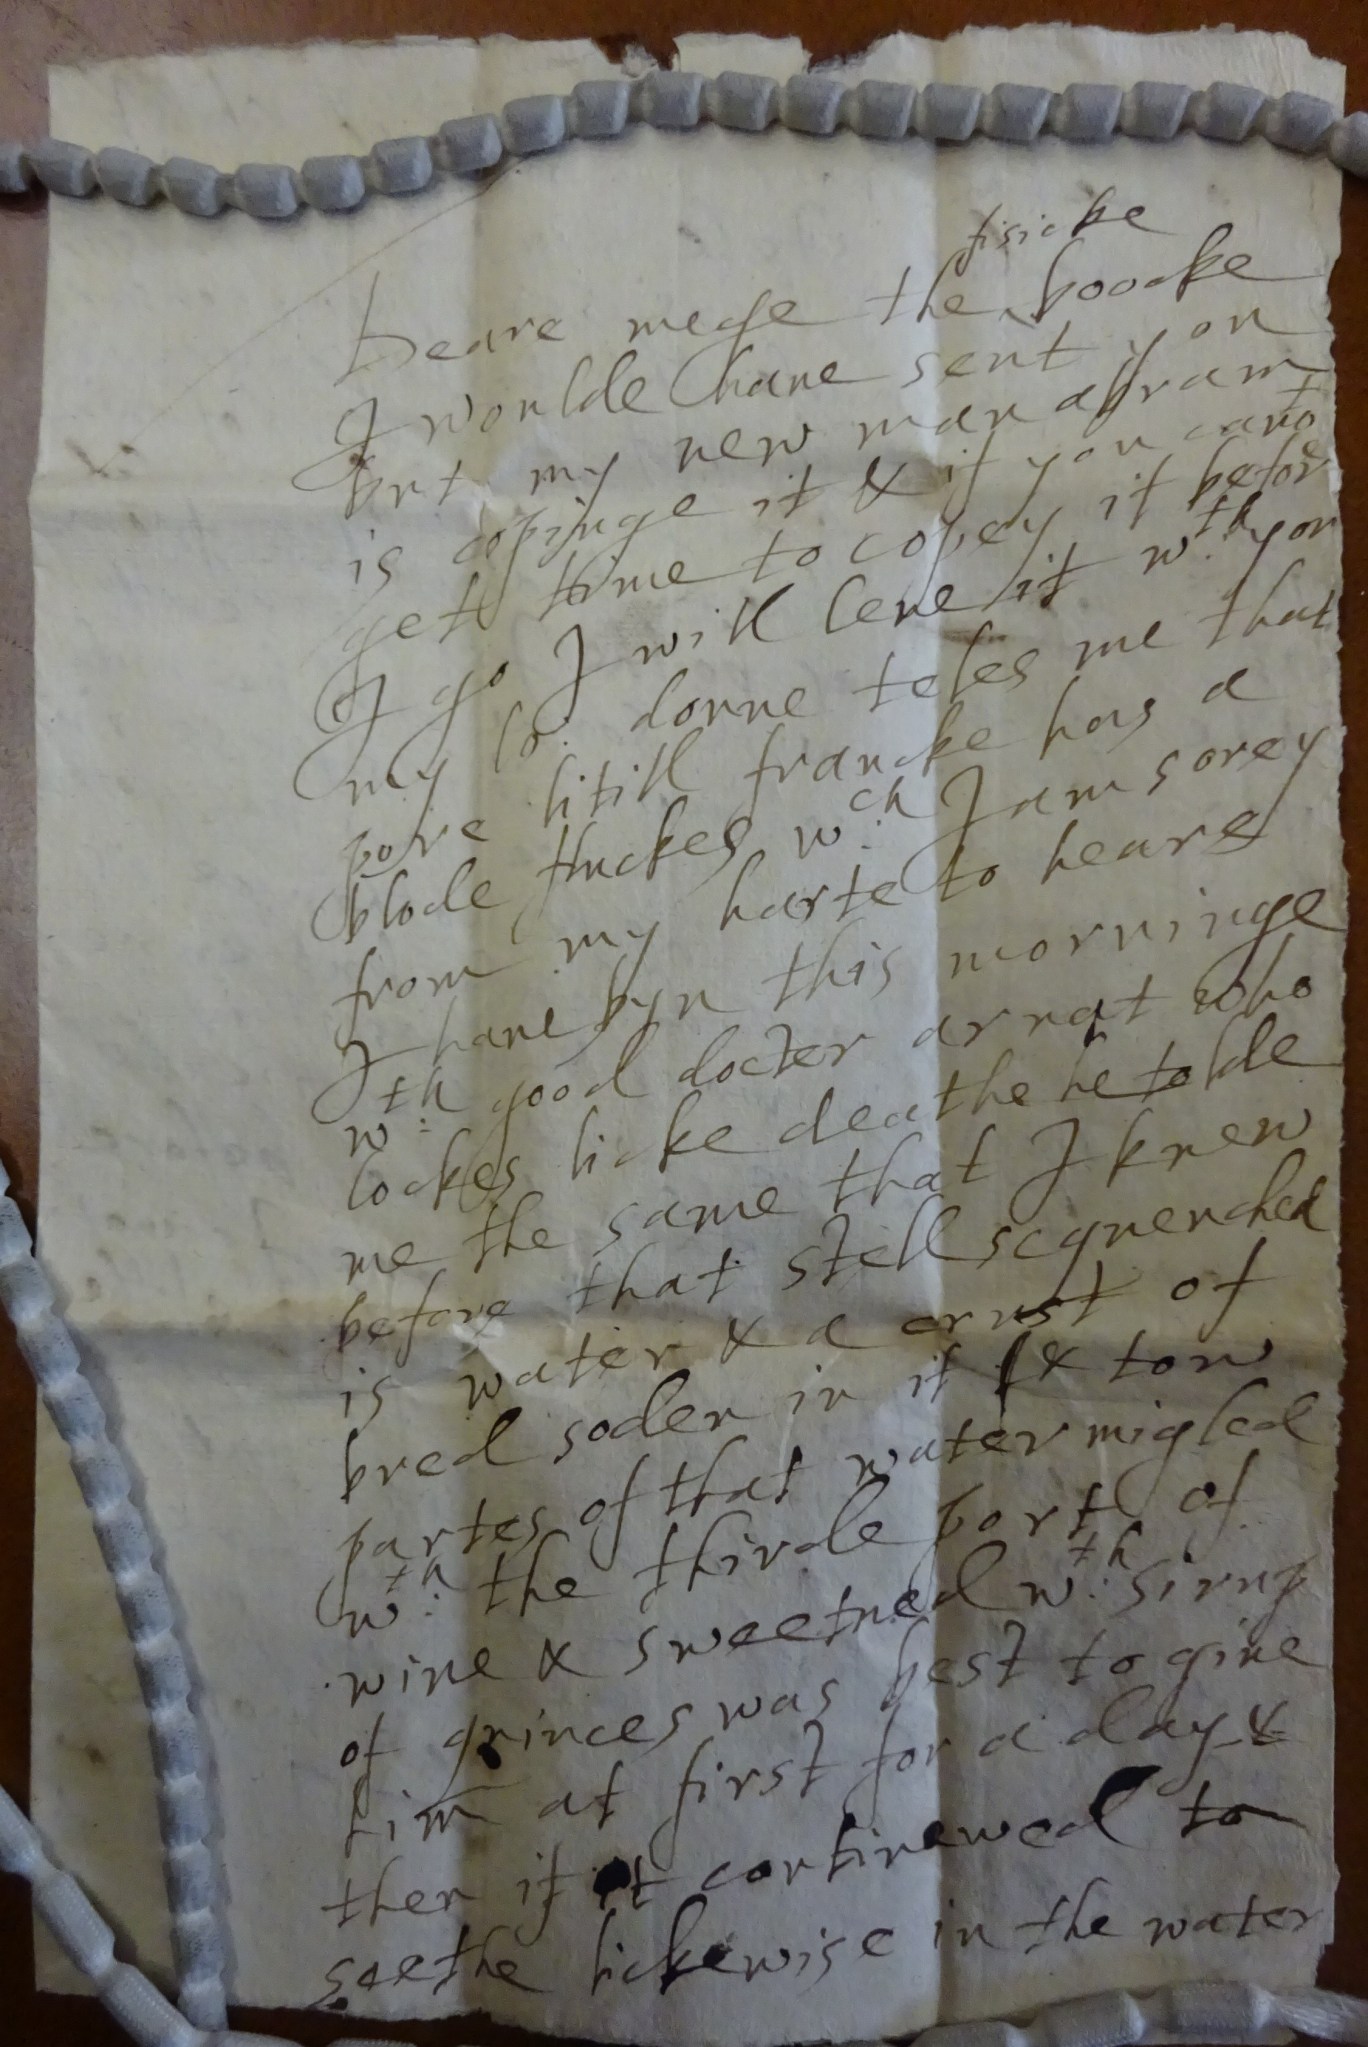 fisicke
Deare mege the boocke
I woulde haue sent you
but my new man abram
is copinge it & if you canot
get time to copey it before
I go I will leue it wth you
my lo. donne teles me that
pore litill francke has a
blode fluckes wch I am sorey
from my harte to heare
I haue byn this morninge
wth good docter arnat who
lockes licke deathe he tolde
me the same that I knew
before that still sequenched
is water & a crust of
bred soden in it & tow
partes of that water migled
wth the thirde part of
wine & sweetned wth sirup
of quinces was best to giue
him at first for a day &
then if it continewed to
seethe lickewise in the water